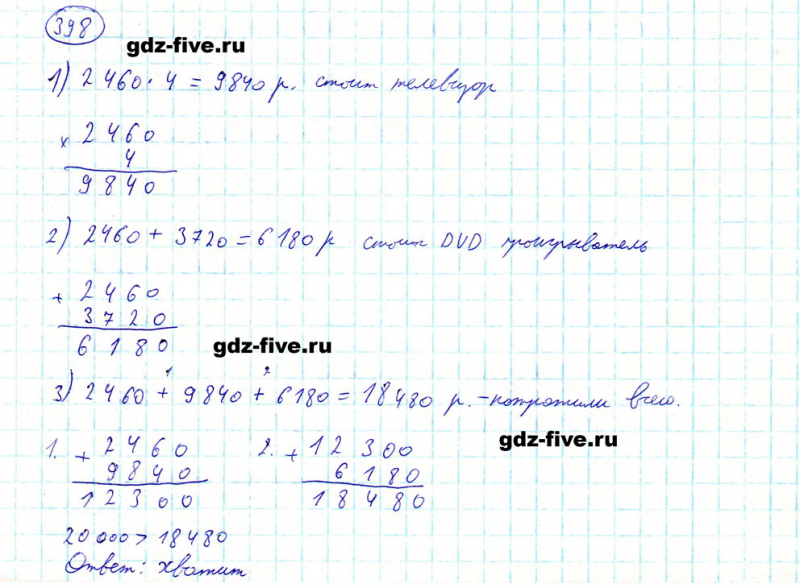 398
gdz-five.ru
1) 2460 · 4 = 9840 р. стоит телевизор
× 2460
4
9840
2) 2460 + 3720 = 6180 р стоит DVD проигрыватель
+ 2460
3720
6180
gdz-five.ru
1 2
3) 2460 + 9840 + 6180 = 18480 р. – потратили всего.
gdz-five.ru
1. + 2460 2. + 12300
9840 6180
12300 18480
20000 > 18480
Ответ: хватит